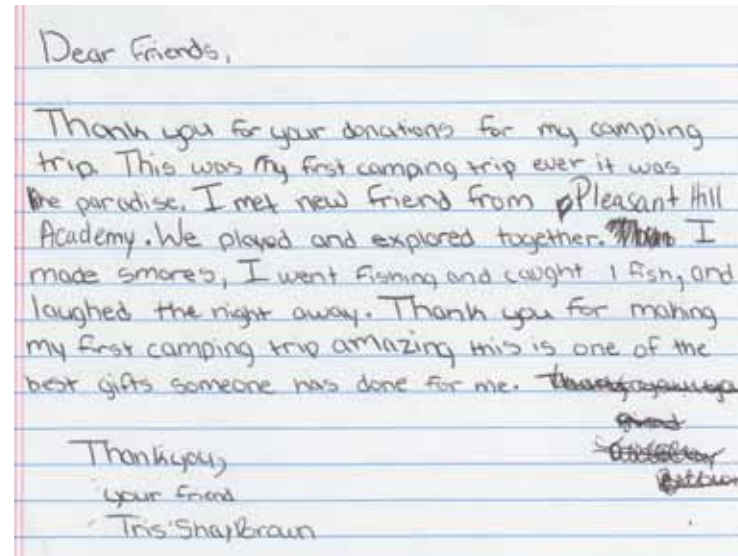 Dear Friends,
Thank you for your donations for my camping
trip. This was my first camping trip ever it was
like paradise. I met new friend from Pleasant Hill
Academy. We played and explored together. I
made smores, I went fishing and caught 1 fish, and
laughed the night away. Thank you for making
my first camping trip amazing this is one of the
best gifts someone has done for me.
Thankyou,
your friend
Tris'Shay Braun